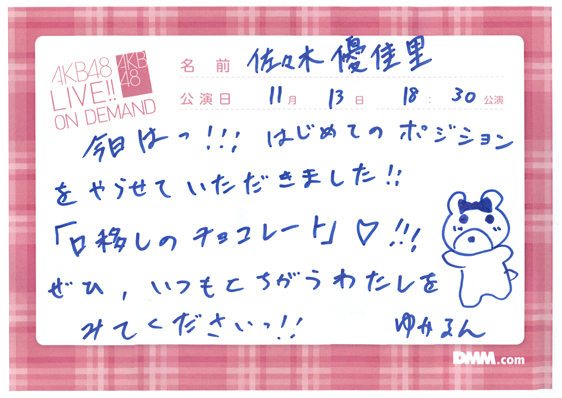 AKB48
LIVE!!
ON DEMAND
AKB
48
名 前 佐々木 優佳里
公演日 11月 13日 18:30公演
今日はっ!!! はじめてのポジション
をやらせていただきました!!
「口移しのチョコレート」♡!!!
ぜひ、いつもとちがうわたしを
みてくださいっ!! ゆかるん
DMM.com